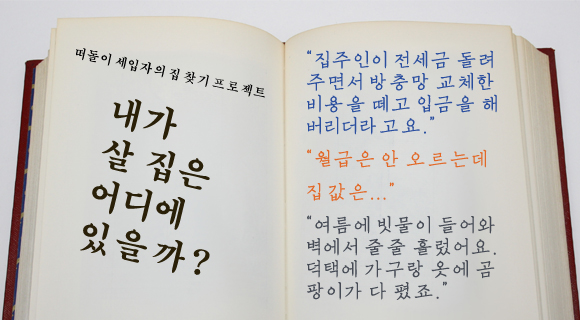 떠돌이 세입자의 집 찾기 프로젝트
내가
살 집은
어디에
있을까?
“집주인이 전세금 돌려
주면서 방충망 교체한
비용을 떼고 입금을 해
버리더라고요.”
“월급은 안 오르는데
집값은...”
“여름에 빗물이 들어와
벽에서 줄줄 흘렀어요.
덕택에 가구랑 옷에 곰
팡이가 다 폈죠.”